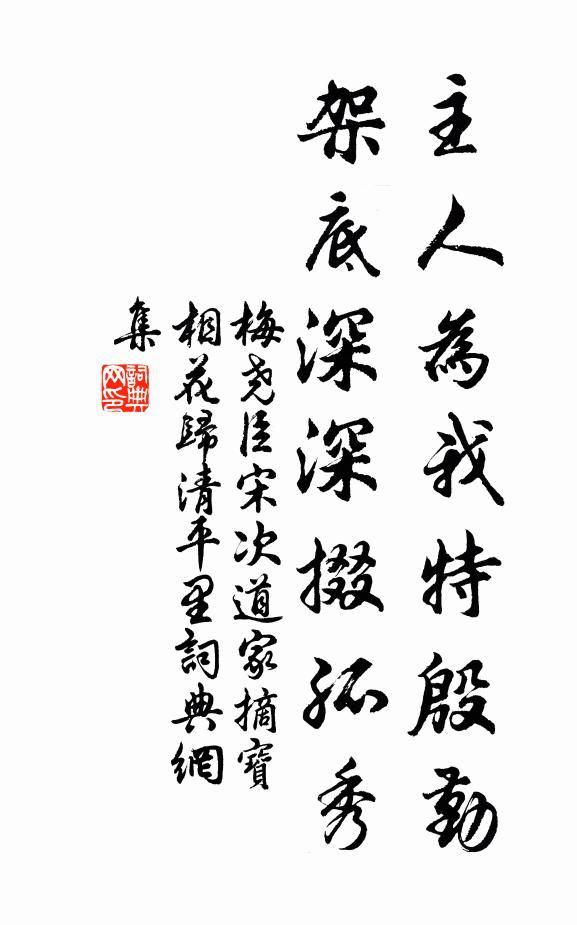 主人為我特殷勤
架底深深掇孤秀
梅堯臣宋次道家摘寶
相花歸清平里詞典網
集
詞典
网印